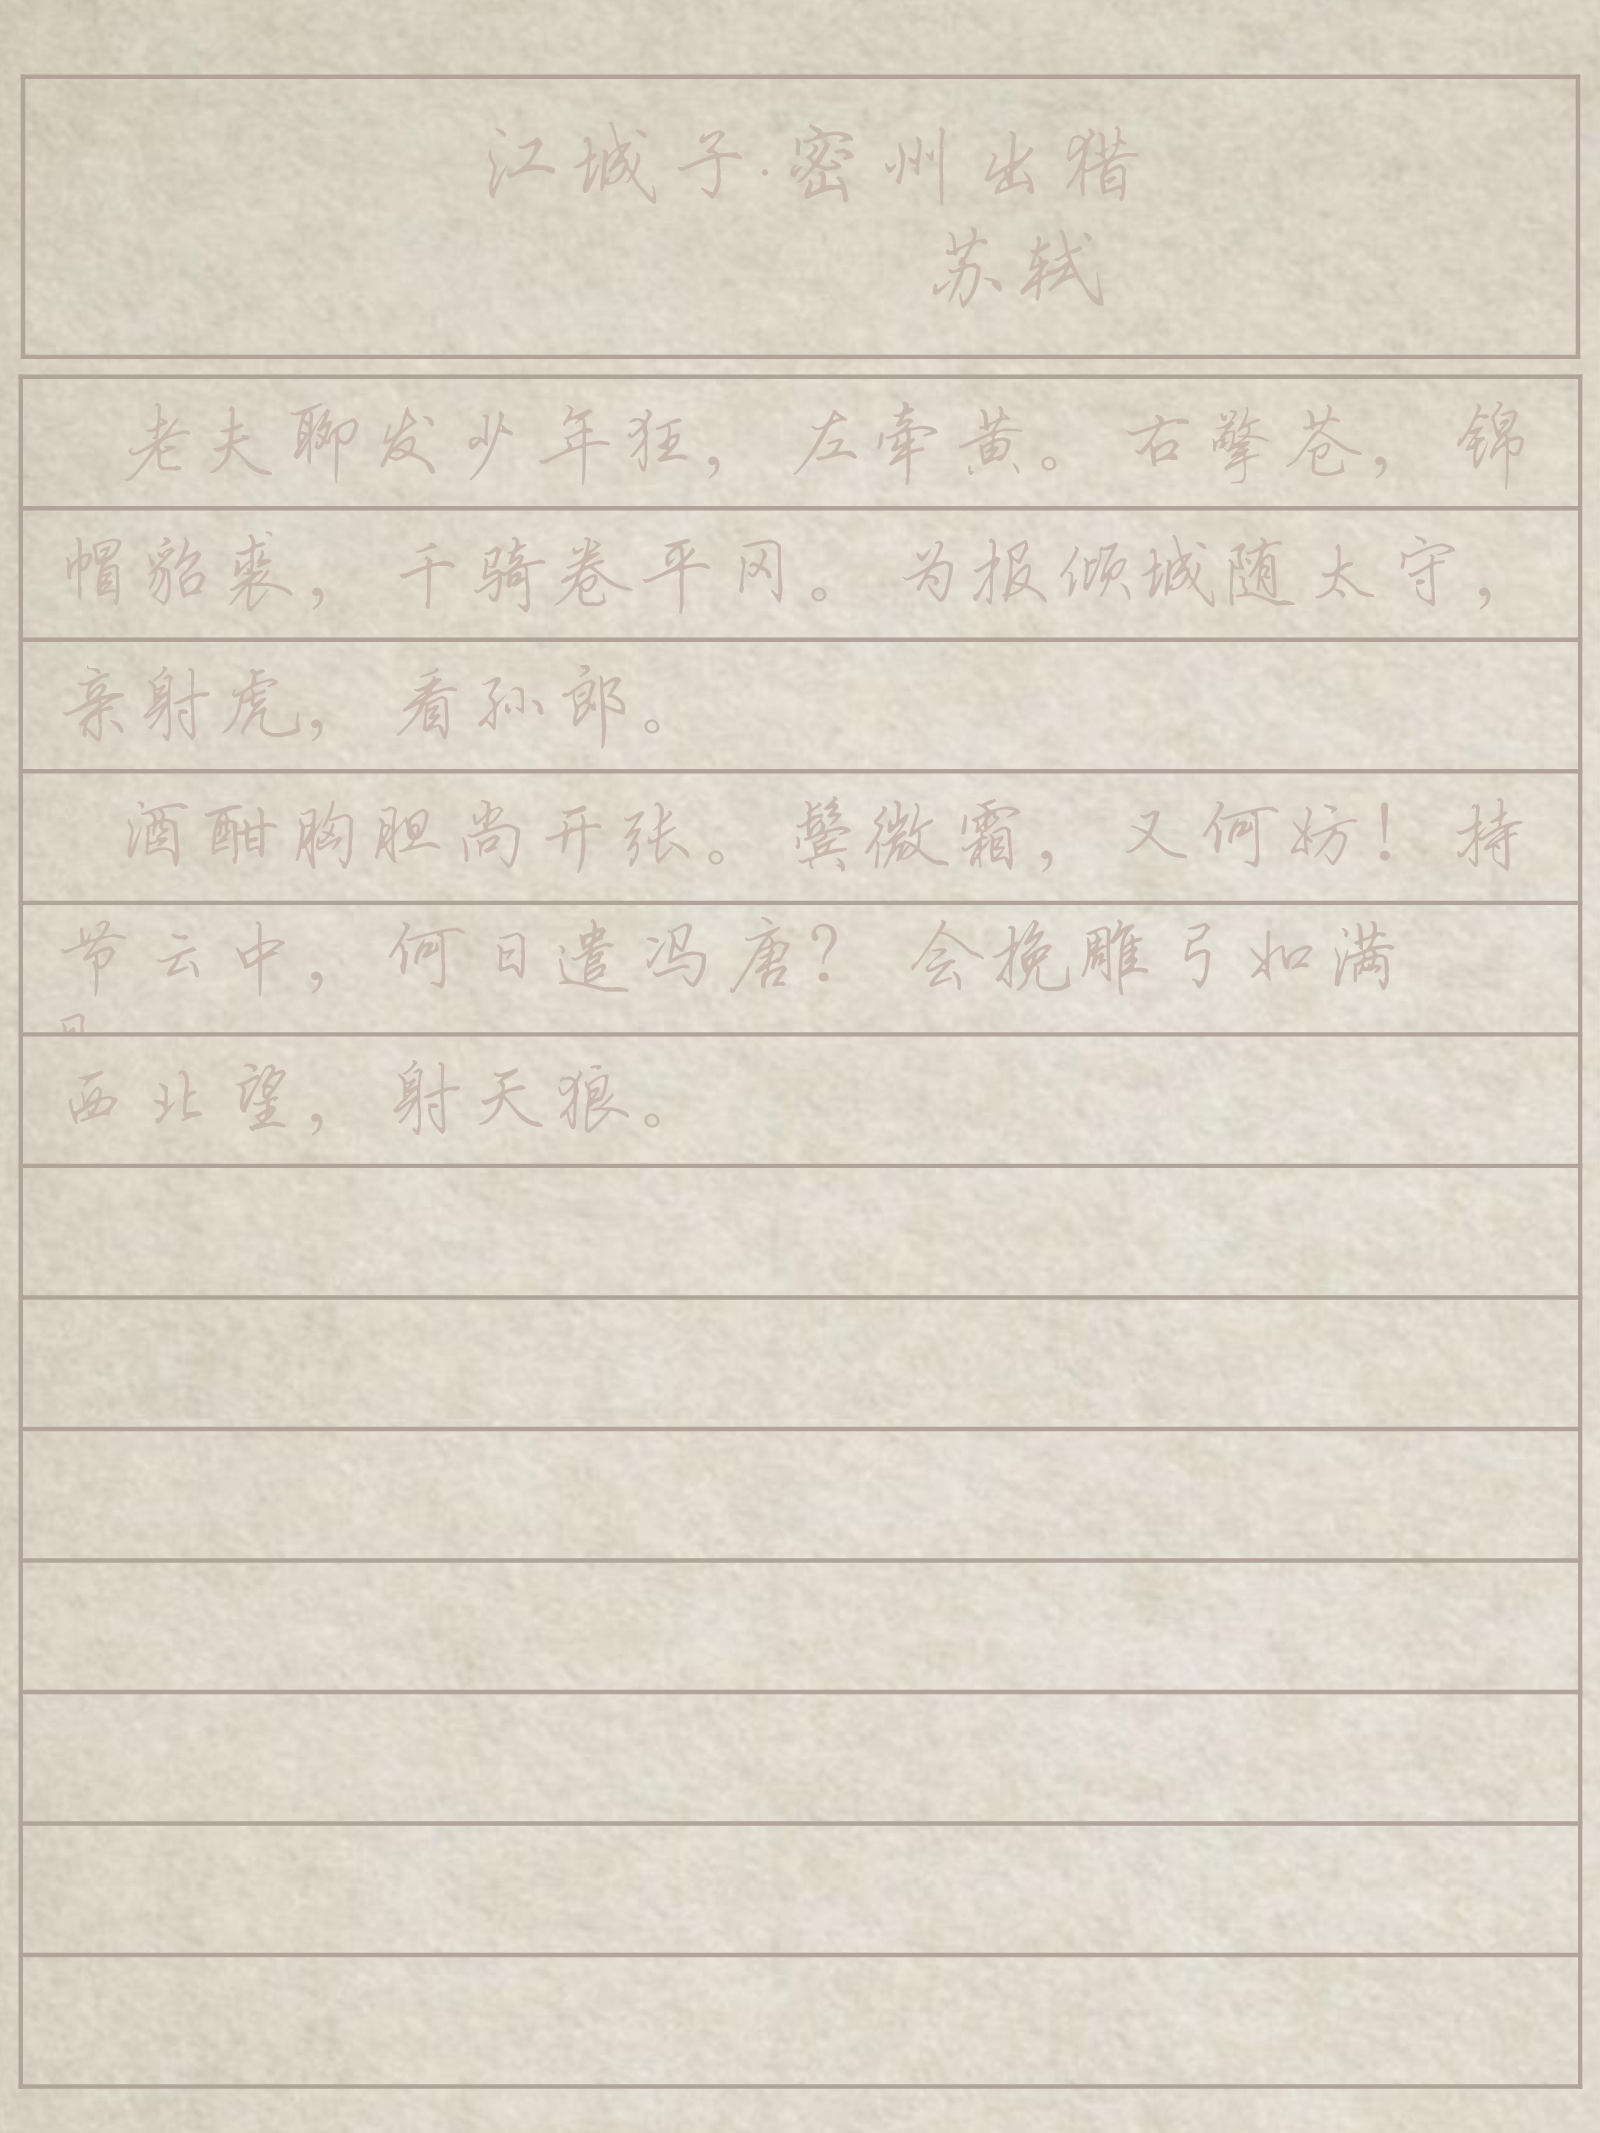 江城子·密州出猎
苏轼
老夫聊发少年狂，左牵黄。右擎苍，锦
帽貂裘，千骑卷平冈。为报倾城随太守，
亲射虎，看孙郎。
酒酣胸胆尚开张。鬓微霜，又何妨！持
节云中，何日遣冯唐？会挽雕弓如满
西北望，射天狼。